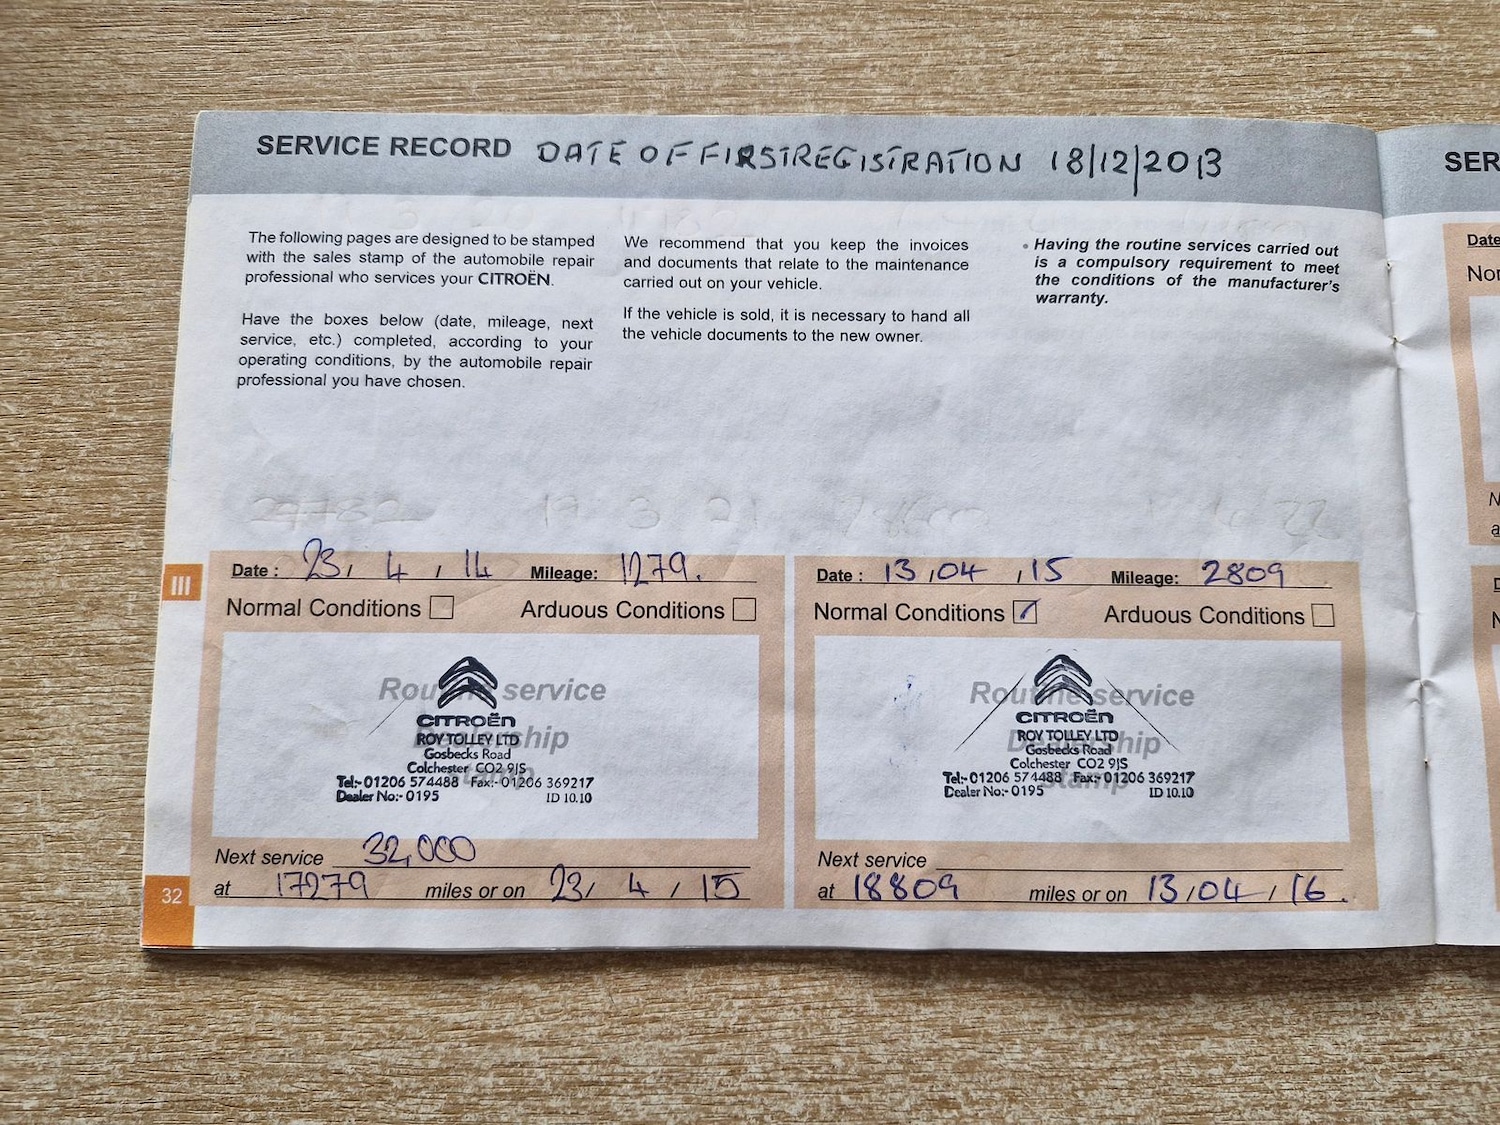 SERVICE RECORD DATE OF FIRST REGISTRATION 18/12/2013
The following pages are designed to be stamped
with the sales stamp of the automobile repair
professional who services your CITROËN.
Have the boxes below (date, mileage, next
service, etc.) completed, according to your
operating conditions, by the automobile repair
professional you have chosen.
We recommend that you keep the invoices
and documents that relate to the maintenance
carried out on your vehicle.
If the vehicle is sold, it is necessary to hand all
the vehicle documents to the new owner.
• Having the routine services carried out
is a compulsory requirement to meet
the conditions of the manufacturer's
warranty.
III
Date : 23, 4, 14 Mileage: 1279.
Normal Conditions Arduous Conditions
Routine service
Dealership
stamp
CITROËN
ROY TOLLEY LTD
Gosbecks Road
Colchester CO2 9JS
Tel:- 01206 574488 Fax:- 01206 369217
Dealer No:- 0195 ID 10.10
Next service 32,000
at 17279 miles or on 23/ 4 / 15
Date : 13,04,15 Mileage: 2809
Normal Conditions Arduous Conditions
Routine service
Dealership
stamp
CITROËN
ROY TOLLEY LTD
Gosbecks Road
Colchester CO2 9JS
Tel:- 01206 574488 Fax:- 01206 369217
Dealer No:- 0195 ID 10.10
Next service
at 18809 miles or on 13,04,16.
32
SER
Date